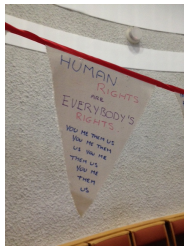 HUMAN
RIGHTS
ARE
EVERYBODY'S
RIGHTS
YOU ME THEM US
YOU ME THEM
US YOU ME
THEM US
YOU ME
THEM
US